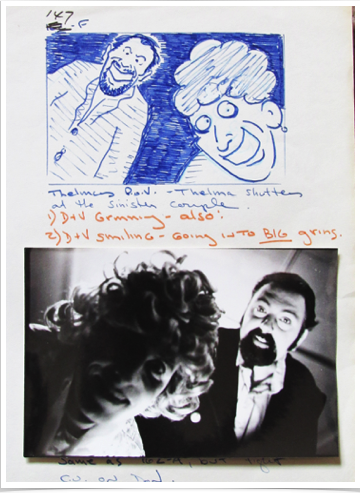 147
-F
Thelma's P.O.V. - Thelma shutters
at the Sinister Couple.
1) D+V Grinning - also:
2) D+V smiling - Going into BIG grins.
Same as 162-A, but tight
C.U. on Dad.